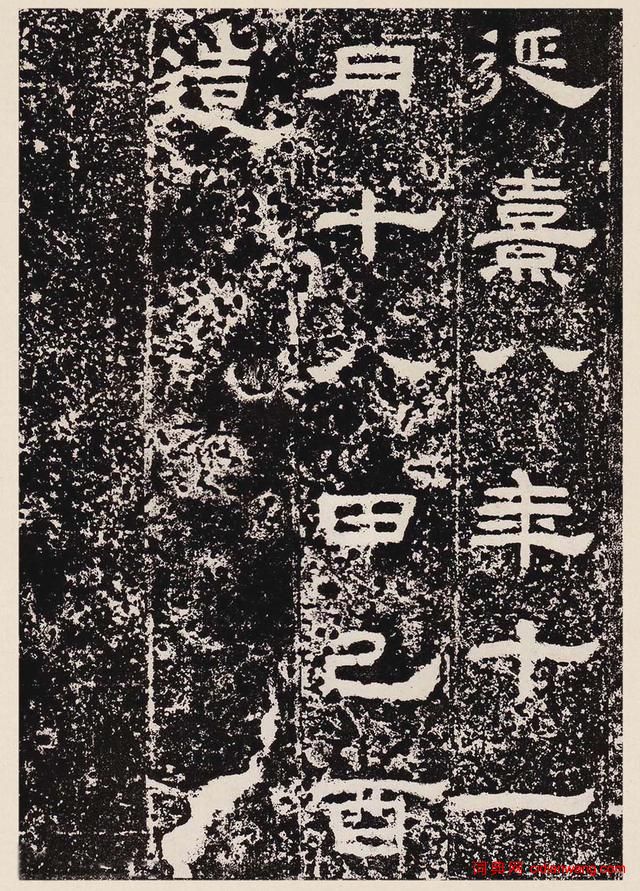 延熹八年十一
月十八日己酉
造